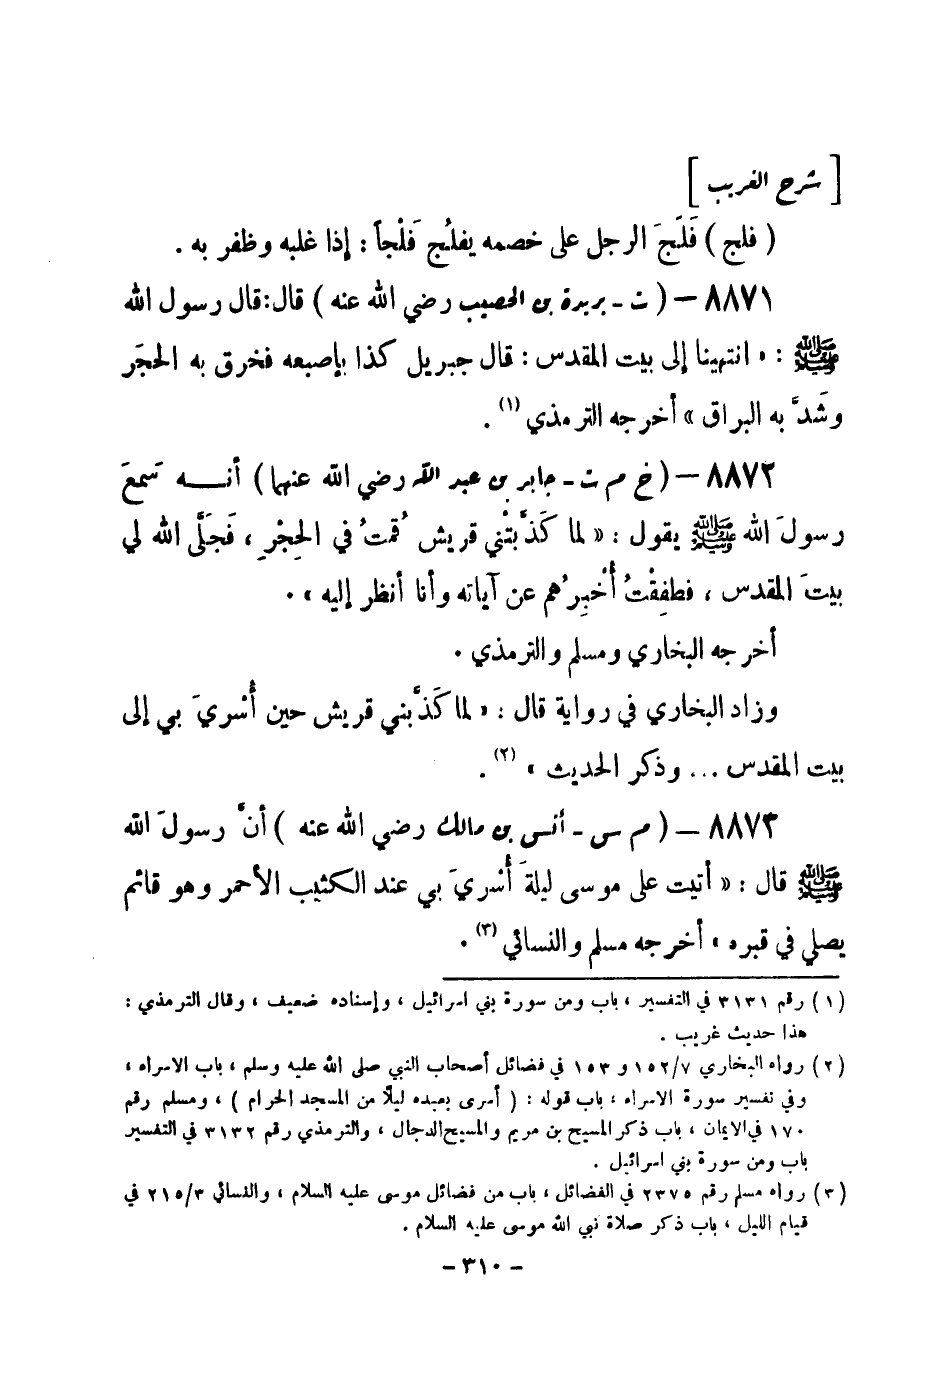 [ شرح الغريب ]
( فلج ) فَلَجَ الرجل على خصمه يفلُج فَلْجاً : إذا غلبه وظفر به .
٨٨٧١ – ( ت - بريدة بن الحصيب رضي الله عنه ) قال:قال رسول الله
ﷺ : « انتهينا إلى بيت المقدس : قال جبريل كذا بإصبعه فخرق به الحجَر
وشَدَّ به البراق » أخرجه الترمذي (١) .
٨٨٧٢ – ( خ م ت - جابر بن عبد الله رضي الله عنهما ) أنـــه سَمِعَ
رسولَ الله ﷺ يقول : « لما كَذَّبَتْني قريش قُمتُ في الحِجْرِ ، فَجَلَّى الله لي
بيتَ المقدس ، فطفِقْتُ أُخبِرُهم عن آياته وأنا أنظر إليه » .
أخرجه البخاري ومسلم والترمذي .
وزاد البخاري في رواية قال : « لما كَذَّبني قريش حين أُسْريَ بي إلى
بيت المقدس ... وذكر الحديث » (٢) .
٨٨٧٣ – ( م س - أنس بن مالك رضي الله عنه ) أنَّ رسولَ الله
ﷺ قال : « أتيت على موسى ليلةَ أُسْريَ بي عند الكثيب الأحمر وهو قائم
يصلي في قبره » أخرجه مسلم والنسائي (٣) .
(١) رقم ٣١٣١ في التفسير ، باب ومن سورة بني اسرائيل ، وإسناده ضعيف ، وقال الترمذي :
هذا حديث غريب .
(٢) رواه البخاري ١٥٢/٧ و ١٥٣ في فضائل أصحاب النبي صلى الله عليه وسلم ، باب الاسراء ،
وفي تفسير سورة الاسراء ، باب قوله : ( أسرى بعبده ليلًا من المسجد الحرام ) ، ومسلم رقم
١٧٠ في الايمان ، باب ذكر المسيح بن مريم والمسيح الدجال ، والترمذي رقم ٣١٣٢ في التفسير
باب ومن سورة بني اسرائيل .
(٣) رواه مسلم رقم ٢٣٧٥ في الفضائل ، باب من فضائل موسى عليه السلام ، والنسائي ٢١٥/٣ في
قيام الليل ، باب ذكر صلاة نبي الله موسى عليه السلام .
- ٣١٠ -